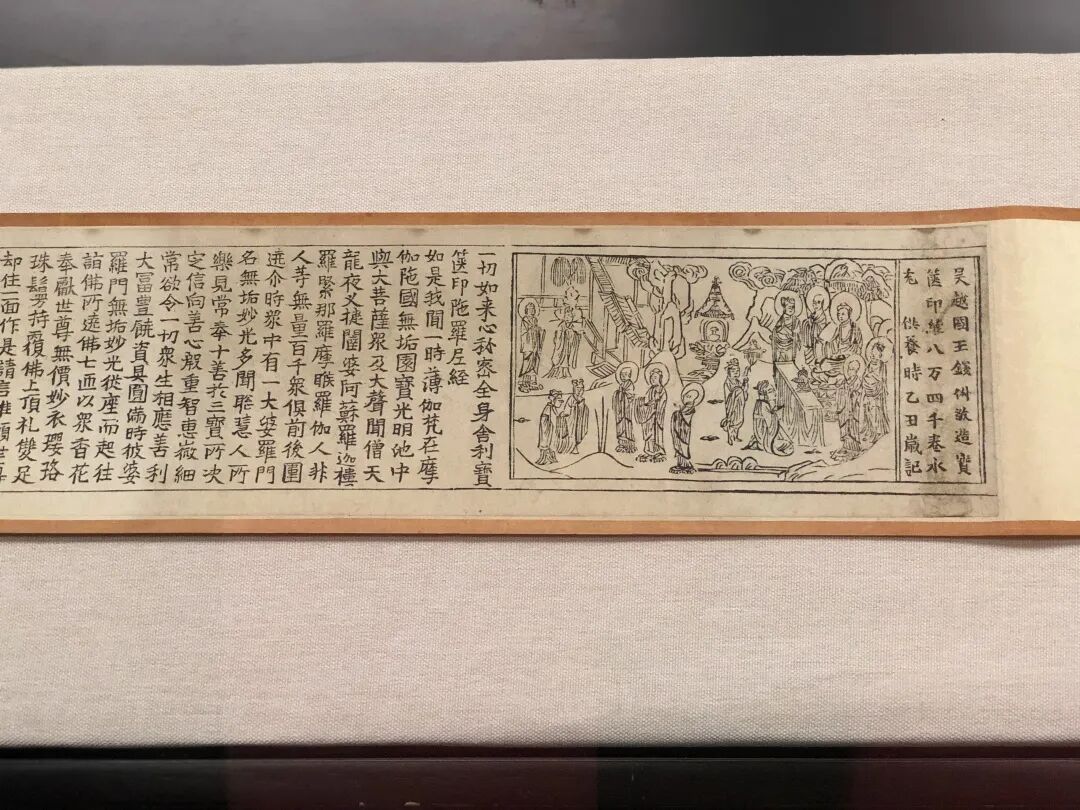 吴越國王錢俶敬造寶
篋印經八万四千卷永
充供養時乙丑歲記
一切如来心秘密全身舍利寶
篋印陁羅尼經
如是我聞一時薄伽梵在摩
伽陁國無垢園寶光明池中
與大菩薩衆及大聲聞僧天
龍夜叉揵闥婆阿蘇羅迦樓
羅緊那羅摩睺羅伽人非
人等無量百千衆俱前後圍
遶尒時衆中有一大婆羅門
名無垢妙光多聞聡慧人所
樂見常奉十善於三寶所决
定信向善心殷重智恵微細
常欲令一切衆生相應善利
大冨豊饒資具圓滿時彼婆
羅門無垢妙光從座而起往
詣佛所遶佛七匝以衆香花
奉獻世尊無價妙衣瓔珞
珠鬘持覆佛上頂礼雙足
却住一面作是請言惟願世